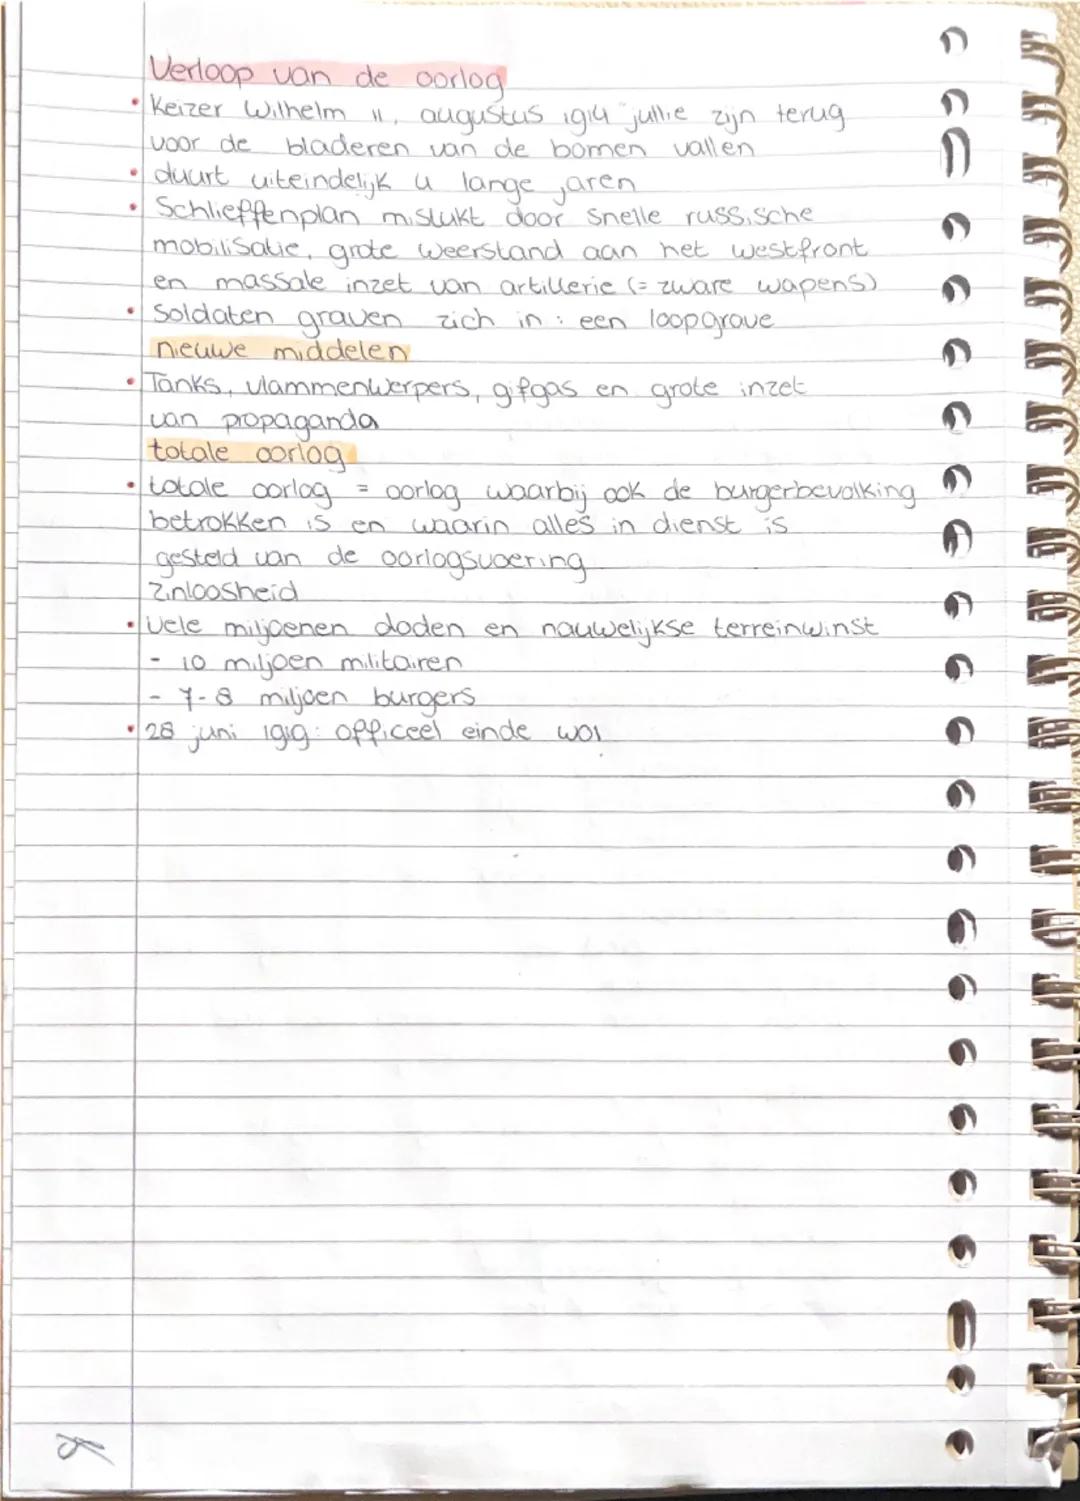 Verloop van de oorlog
• Keizer Wilhelm II, augustus 1914 "jullie zijn terug
voor de bladeren van de bomen vallen
• duurt uiteindelijk 4 lange jaren
• Schlieffenplan mislukt door snelle russische
mobilisatie, grote weerstand aan het westfront
en massale inzet van artillerie (= zware wapens)
• Soldaten graven zich in : een loopgrave
nieuwe middelen
• Tanks, vlammenwerpers, gifgas en grote inzet
van propaganda
totale oorlog
• totale oorlog = oorlog waarbij ook de burgerbevolking
betrokken is en waarin alles in dienst is
gesteld van de oorlogsvoering
Zinloosheid
• Vele miljoenen doden en nauwelijkse terreinwinst
- 10 miljoen militairen
- 7-8 miljoen burgers
• 28 juni 1919: officeel einde WO1